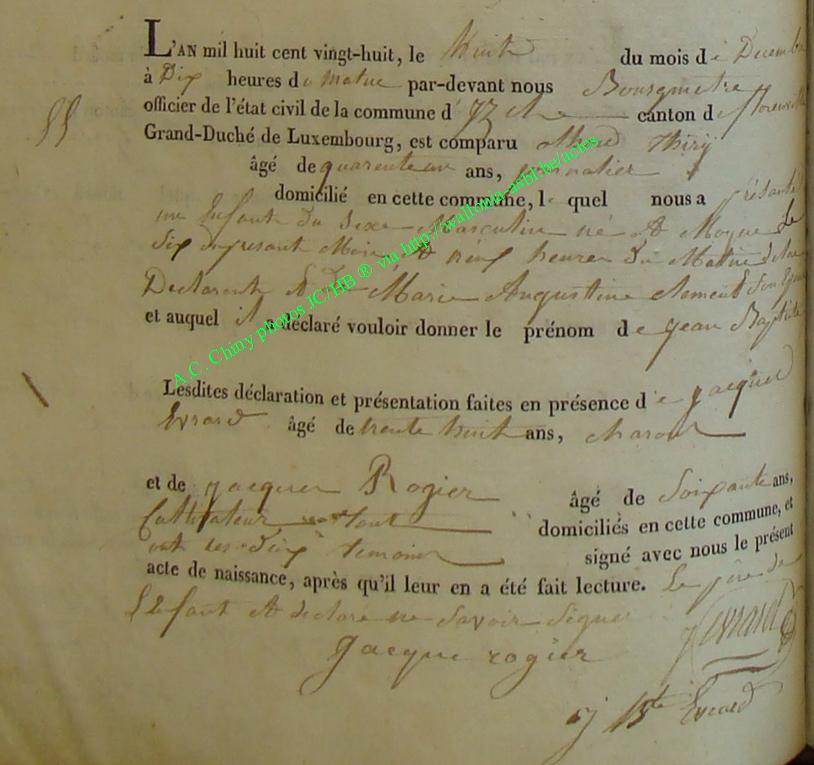 L'AN mil huit cent vingt-huit, le huit du mois de Decembre
à Dix heures du matin par-devant nous Bourgmestre
officier de l'état civil de la commune d' canton de florenville
55
Grand-Duché de Luxembourg, est comparu thiry
âgé de quarente un ans,
domicilié en cette commune, le quel nous a présenté
une Enfant du sexe Masculin né A Moyen Le
six du present Mois A neuf heures du Matin de lui
Declarant & De Marie Augustine clement Son Epouse
et auquel il a déclaré vouloir donner le prénom de jean Baptiste
A.C. Chiny photos JC/HB ® via http://wallonia-asbl.bg/actes.
Lesdites déclaration et présentation faites en présence de jacques
Evrard âgé de trente huit ans, charon
et de jacques Rogier âgé de Soixante ans,
Cultivateur tout domiciliés en cette commune, et
ont les deux temoins signé avec nous le présent
acte de naissance, après qu'il leur en a été fait lecture. Le père de
L'Efant A declaré ne savoir signer
jacque rogier
j Bte Evrard